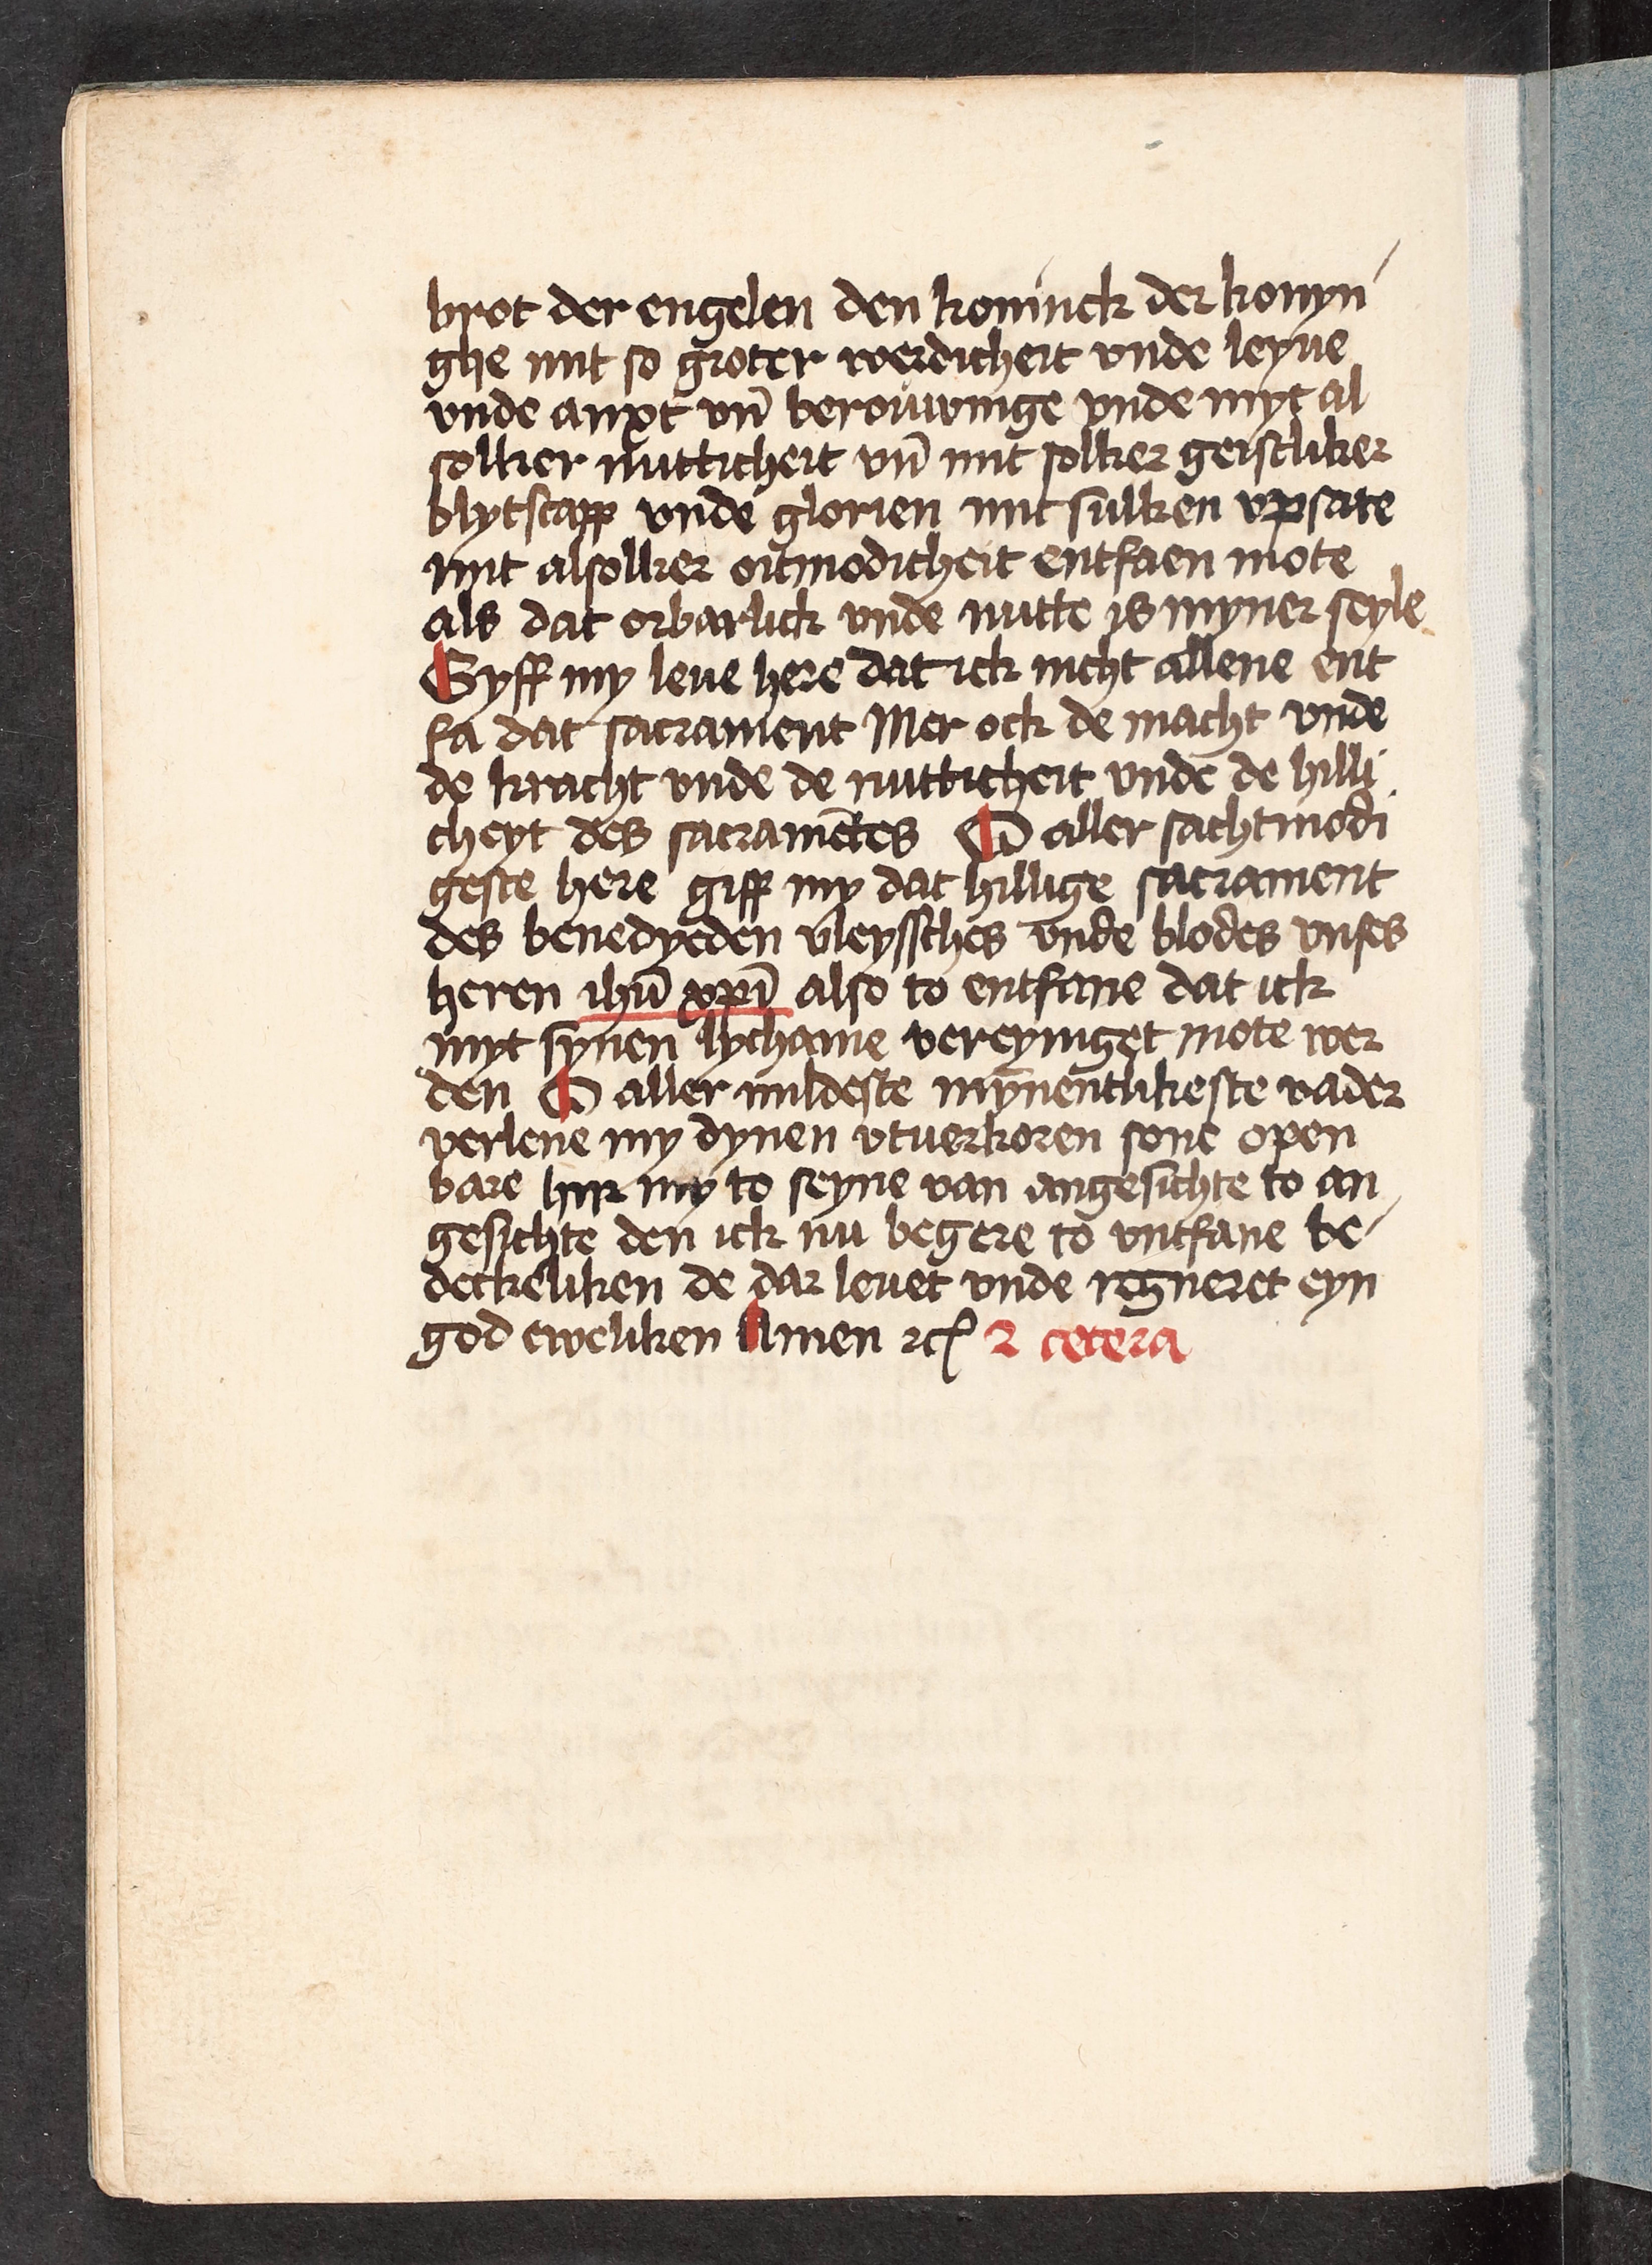 brot der engelen den koninck der konyn
ghe mit so groter werdicheit vnde leyue
vnde anxt vn̄ berouwinge vnde myt al
solker nutticheit vn̄ mit solker geistliker
blytscapp vnde glorien mit sulken vpsate
mit alsolker oitmodicheit entfaen mote
als dat orbarlick vnde nutte is myner seyle
Gyff my leue here dat ick nicht allene ent
fa dat sacrament Mer ock de macht vnde
de kracht vnde de nutticheit vnde de hilli
cheyt des sacramētes O aller sachtmodi
geste here giff my dat hillige sacrament
des benedyeden vleyssches vnde blodes vnses
heren ihū xpī also to entfane dat ick
myt synen lychame vereyniget mote wer
den O aller mildeste mȳnentlikeste vader
verlene my dynen vtuerkoren sone open
bare hijr my to seyne van angesichte to an
gesichte den ick nu begere to vntfane be-
deckeliken de dar leuet vnde regneret eyn
god eweliken Amen ⁊cꝭ ⁊ cetera